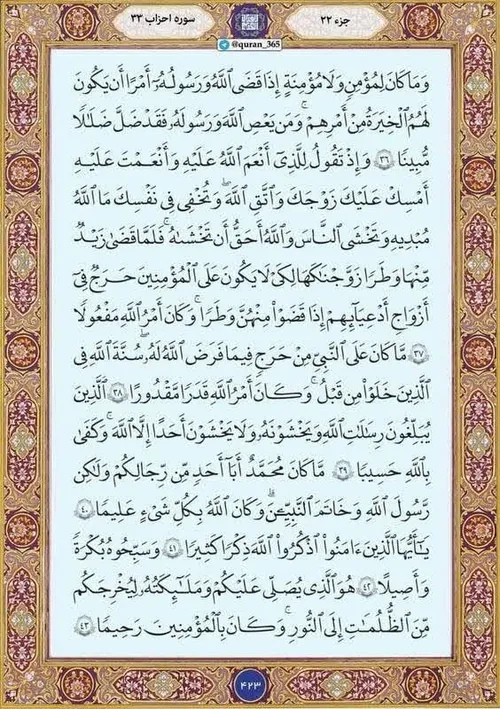 جزء ۲۲
@quran_365
سوره احزاب ۳۳
وَمَا كَانَ لِمُؤْمِنٍ وَلَا مُؤْمِنَةٍ إِذَا قَضَى ٱللَّهُ وَرَسُولُهُۥٓ أَمْرًا أَن يَكُونَ
لَهُمُ ٱلْخِيَرَةُ مِنْ أَمْرِهِمْ ۗ وَمَن يَعْصِ ٱللَّهَ وَرَسُولَهُۥ فَقَدْ ضَلَّ ضَلَٰلًا
مُّبِينًا ٣٦ وَإِذْ تَقُولُ لِلَّذِىٓ أَنْعَمَ ٱللَّهُ عَلَيْهِ وَأَنْعَمْتَ عَلَيْهِ
أَمْسِكْ عَلَيْكَ زَوْجَكَ وَٱتَّقِ ٱللَّهَ وَتُخْفِى فِى نَفْسِكَ مَا ٱللَّهُ
مُبْدِيهِ وَتَخْشَى ٱلنَّاسَ وَٱللَّهُ أَحَقُّ أَن تَخْشَىٰهُ ۖ فَلَمَّا قَضَىٰ زَيْدٌ
مِّنْهَا وَطَرًا زَوَّجْنَٰكَهَا لِكَىْ لَا يَكُونَ عَلَى ٱلْمُؤْمِنِينَ حَرَجٌ فِىٓ
أَزْوَٰجِ أَدْعِيَآئِهِمْ إِذَا قَضَوْا۟ مِنْهُنَّ وَطَرًا ۚ وَكَانَ أَمْرُ ٱللَّهِ مَفْعُولًا
٣٧ مَّا كَانَ عَلَى ٱلنَّبِىِّ مِنْ حَرَجٍ فِيمَا فَرَضَ ٱللَّهُ لَهُۥ ۖ سُنَّةَ ٱللَّهِ فِى
ٱلَّذِينَ خَلَوْا۟ مِن قَبْلُ ۚ وَكَانَ أَمْرُ ٱللَّهِ قَدَرًا مَّقْدُورًا ٣٨ ٱلَّذِينَ
يُبَلِّغُونَ رِسَٰلَٰتِ ٱللَّهِ وَيَخْشَوْنَهُۥ وَلَا يَخْشَوْنَ أَحَدًا إِلَّا ٱللَّهَ ۗ وَكَفَىٰ
بِٱللَّهِ حَسِيبًا ٣٩ مَّا كَانَ مُحَمَّدٌ أَبَآ أَحَدٍ مِّن رِّجَالِكُمْ وَلَٰكِن
رَّسُولَ ٱللَّهِ وَخَاتَمَ ٱلنَّبِيِّـۧنَ ۗ وَكَانَ ٱللَّهُ بِكُلِّ شَىْءٍ عَلِيمًا ٤٠
يَٰٓأَيُّهَا ٱلَّذِينَ ءَامَنُوا۟ ٱذْكُرُوا۟ ٱللَّهَ ذِكْرًا كَثِيرًا ٤١ وَسَبِّحُوهُ بُكْرَةً
وَأَصِيلًا ٤٢ هُوَ ٱلَّذِى يُصَلِّى عَلَيْكُمْ وَمَلَٰٓئِكَتُهُۥ لِيُخْرِجَكُم
مِّنَ ٱلظُّلُمَٰتِ إِلَى ٱلنُّورِ ۚ وَكَانَ بِٱلْمُؤْمِنِينَ رَحِيمًا ٤٣
۴۲۳